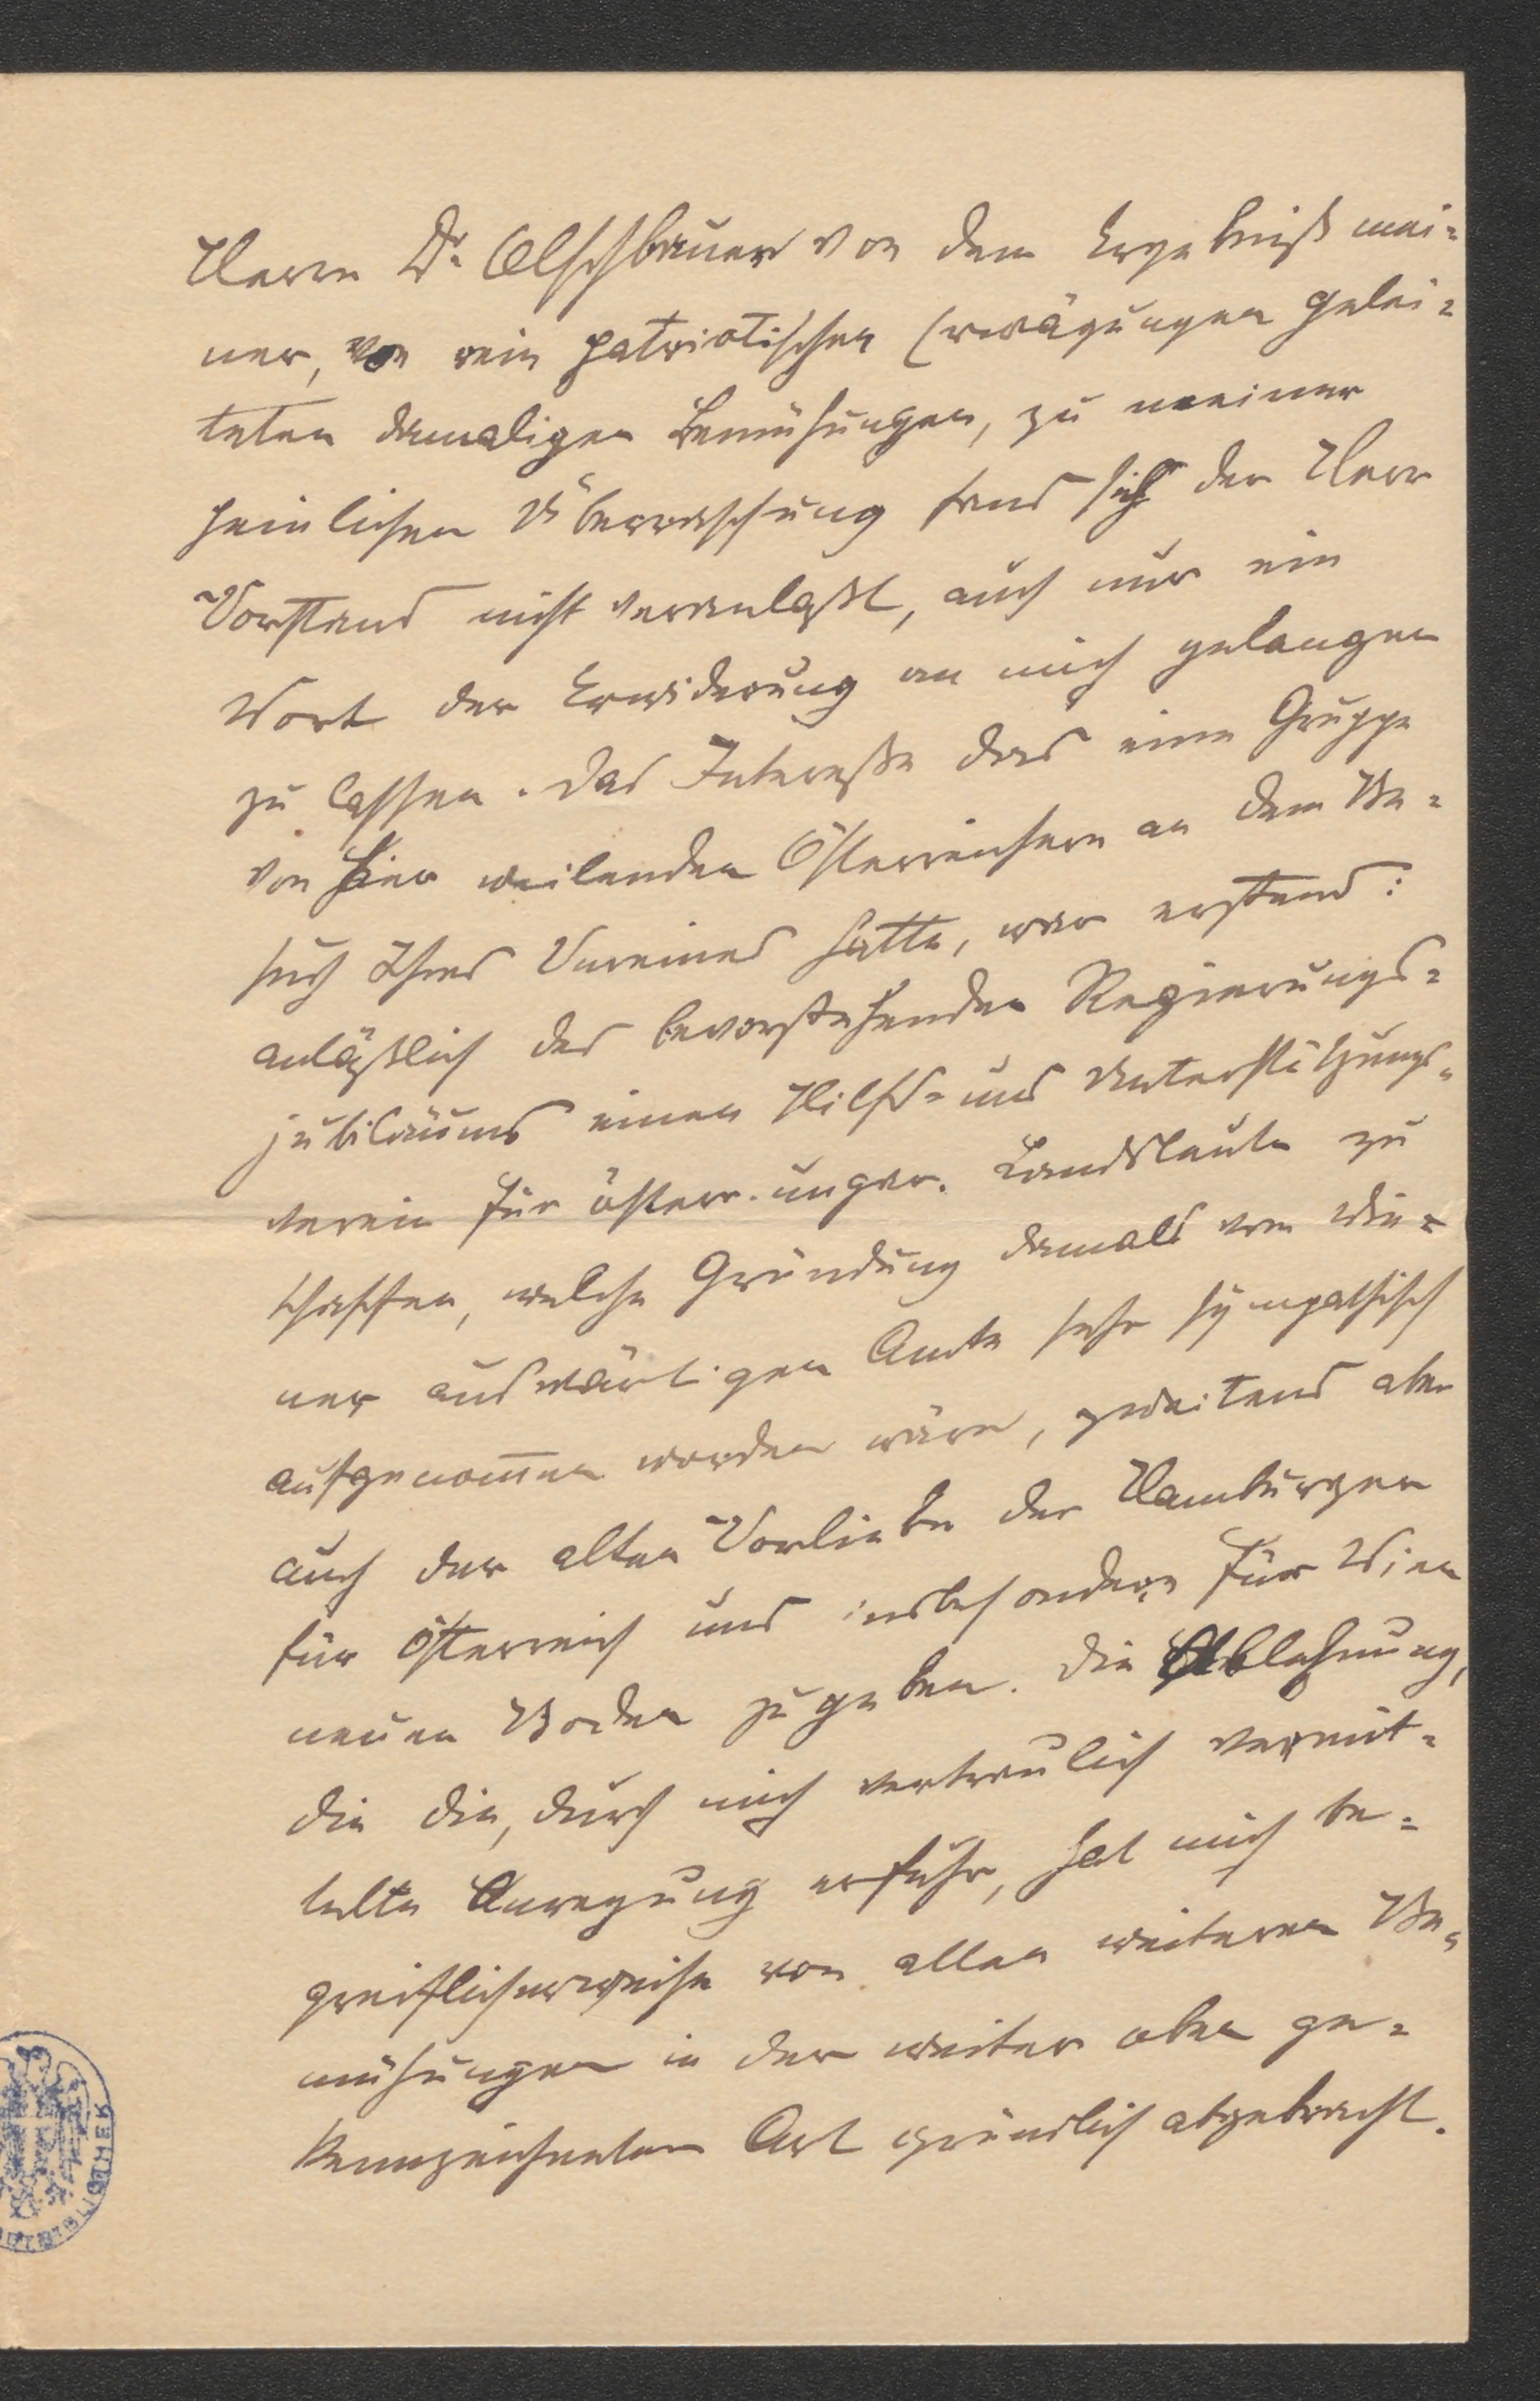 Herrn Dr. Olschbauer von dem Ergebniß mei-
ner, von rein patriotischen Erwägungen gelei-
teten damaligen Bemühungen, zu meiner
peinlichen Überraschung fand sich der Herr
Vorstand nicht veranlaßt, auch nur ein
Wort der Erwiderung an mich gelangen
zu lassen. Das Interesse das eine Gruppe
von hier weilenden Österreichern an dem Be-
such Ihres Vereines hatte, war erstens:
anläßlich des bevorstehenden Regierungs-
jubiläums einen Hilfs- und Unterstützungs-
verein für österr. ungar. Landsleute zu
schaffen, welche Gründung damals vom Wie-
ner auswärtigen Amte sehr sympathisch
aufgenom̅en worden wäre, zweitens aber
auch der alten Vorliebe der Hamburger
für Österreich und insbesondere für Wien
neuen Boden zu geben. Die Ablehnung,
die die, durch mich vertraulich vermit-
telte Anregung erfuhr, hat mich be-
greiflicherweise von allen weiteren Be-
mühungen in der weiter oben ge-
kennzeichneten Art gründlich abgebracht.